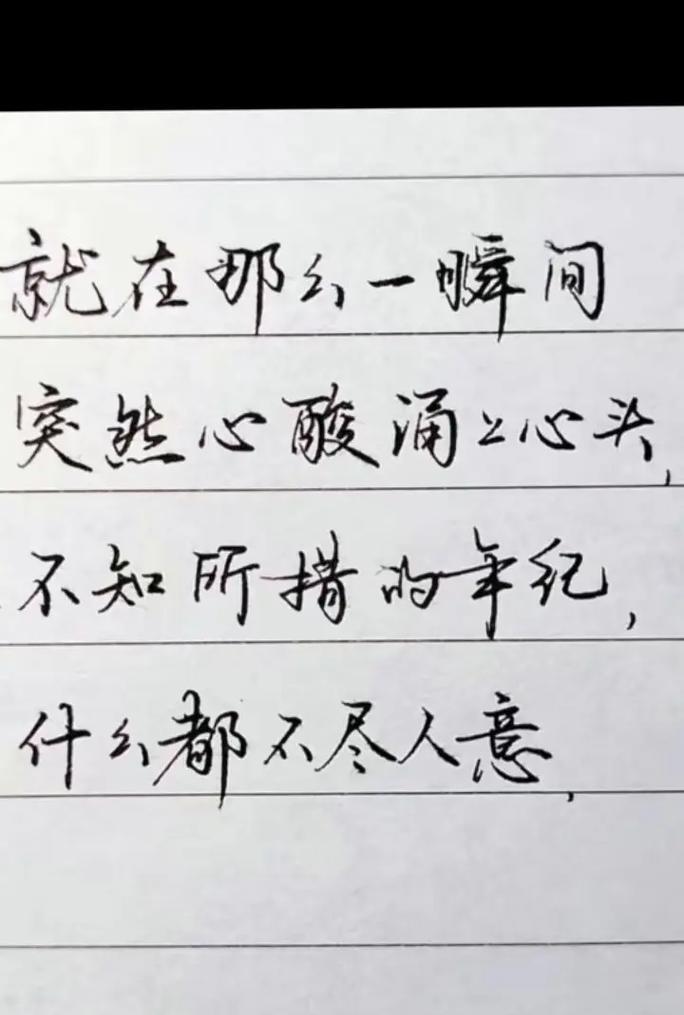 就在那么一瞬间
突然心酸涌上心头,
不知所措的年纪,
什么都不尽人意,